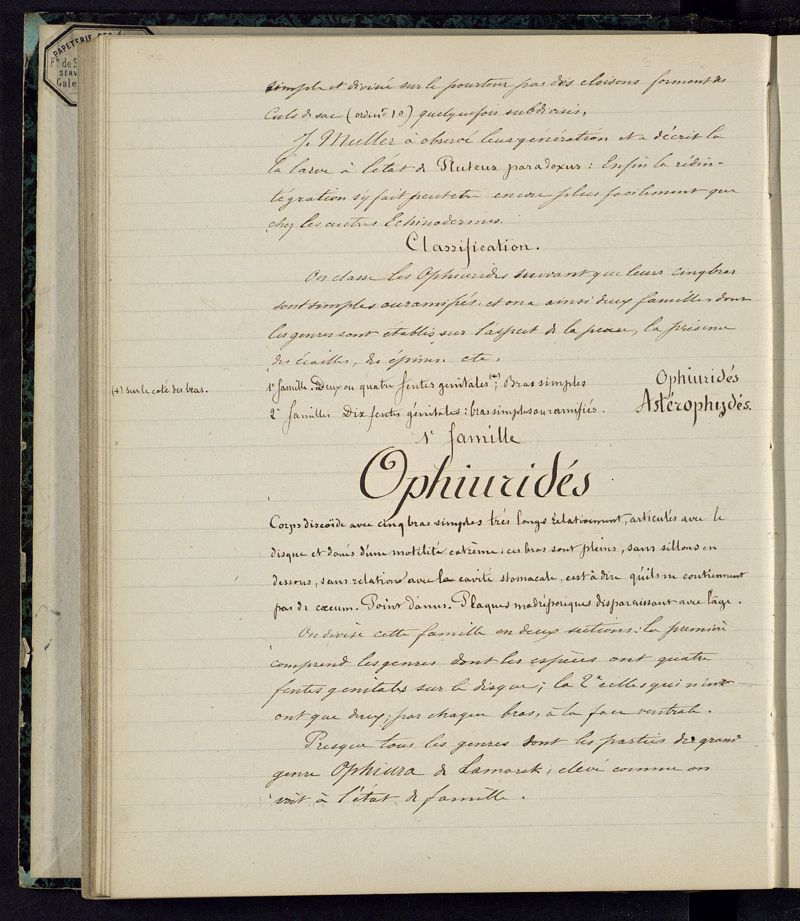 PAPETERIE DES
Fg de S
SERV
Gale
simple et divisée sur le pourtour par des cloisons formant des
Culs de sac (ordint 10) quelquefois subdivisés.
J. Muller à observé leur génération et a décrit la
la larve à l'état de Pluteus paradoxus : Enfin la rédin-
tégration s'y fait peut etre encore plus facilement que
chez les autres Echinodermes.
Classification.
On classe les Ophiurides suivant que leurs cinq bras
sont simples ou ramifiés, et on a ainsi deux familles dont
les genres sont etablis sur l'aspect de la peau, la présence
des écailles, des épines etc.
(+) sur le coté des bras.
1e famille. Deux ou quatre fentes genitales (+); Bras simples Ophiuridés
2e familles Dix fentes génitales : bras simples ou ramifiés. Astérophydés.
1e famille
Ophiuridés
Corps discoïde avec cinq bras simples très longs relativement, articulés avec le
disque et doués d'une motilité extrême : ces bras sont pleins, sans sillons en
dessous, sans relation avec la cavité stomacale, c'est à dire qu'ils ne contiennent
pas de cœcum. Point d'anus. Plaques madréporiques disparaissant avec l'âge.
On divise cette famille en deux sections : la première
comprend les genres dont les espèces ont quatre
fentes genitales sur le disque ; la 2e celles qui n'en
ont que deux, par chaque bras, à la face ventrale.
Presque tous les genres sont les parties du grand
genre Ophiura de Lamarck, elevé comme on
voit à l'état de famille.